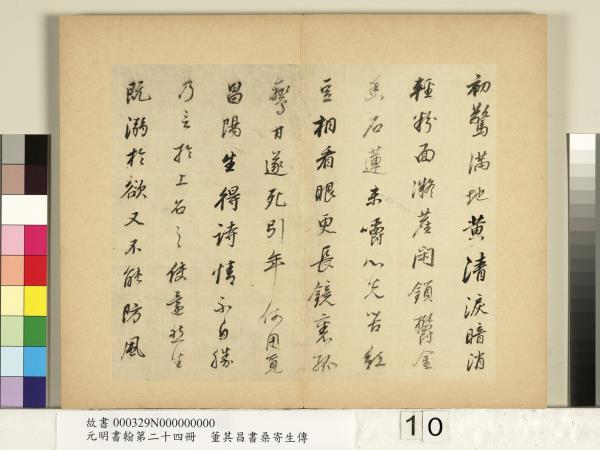 初驚滿地黃清淚暗消
輕粉面凝塵閑鎖鬱金
香石蓮未嚼心先苦紅
豆相看眼更長鏡裏孤
鸞甘遂死引年何用覓
昌陽生得詩情不自勝
乃言於上名之使還
既溺於欲又不能防風
故書 000329N000000000
元明書翰第二十四冊 董其昌書桑寄生傳
10